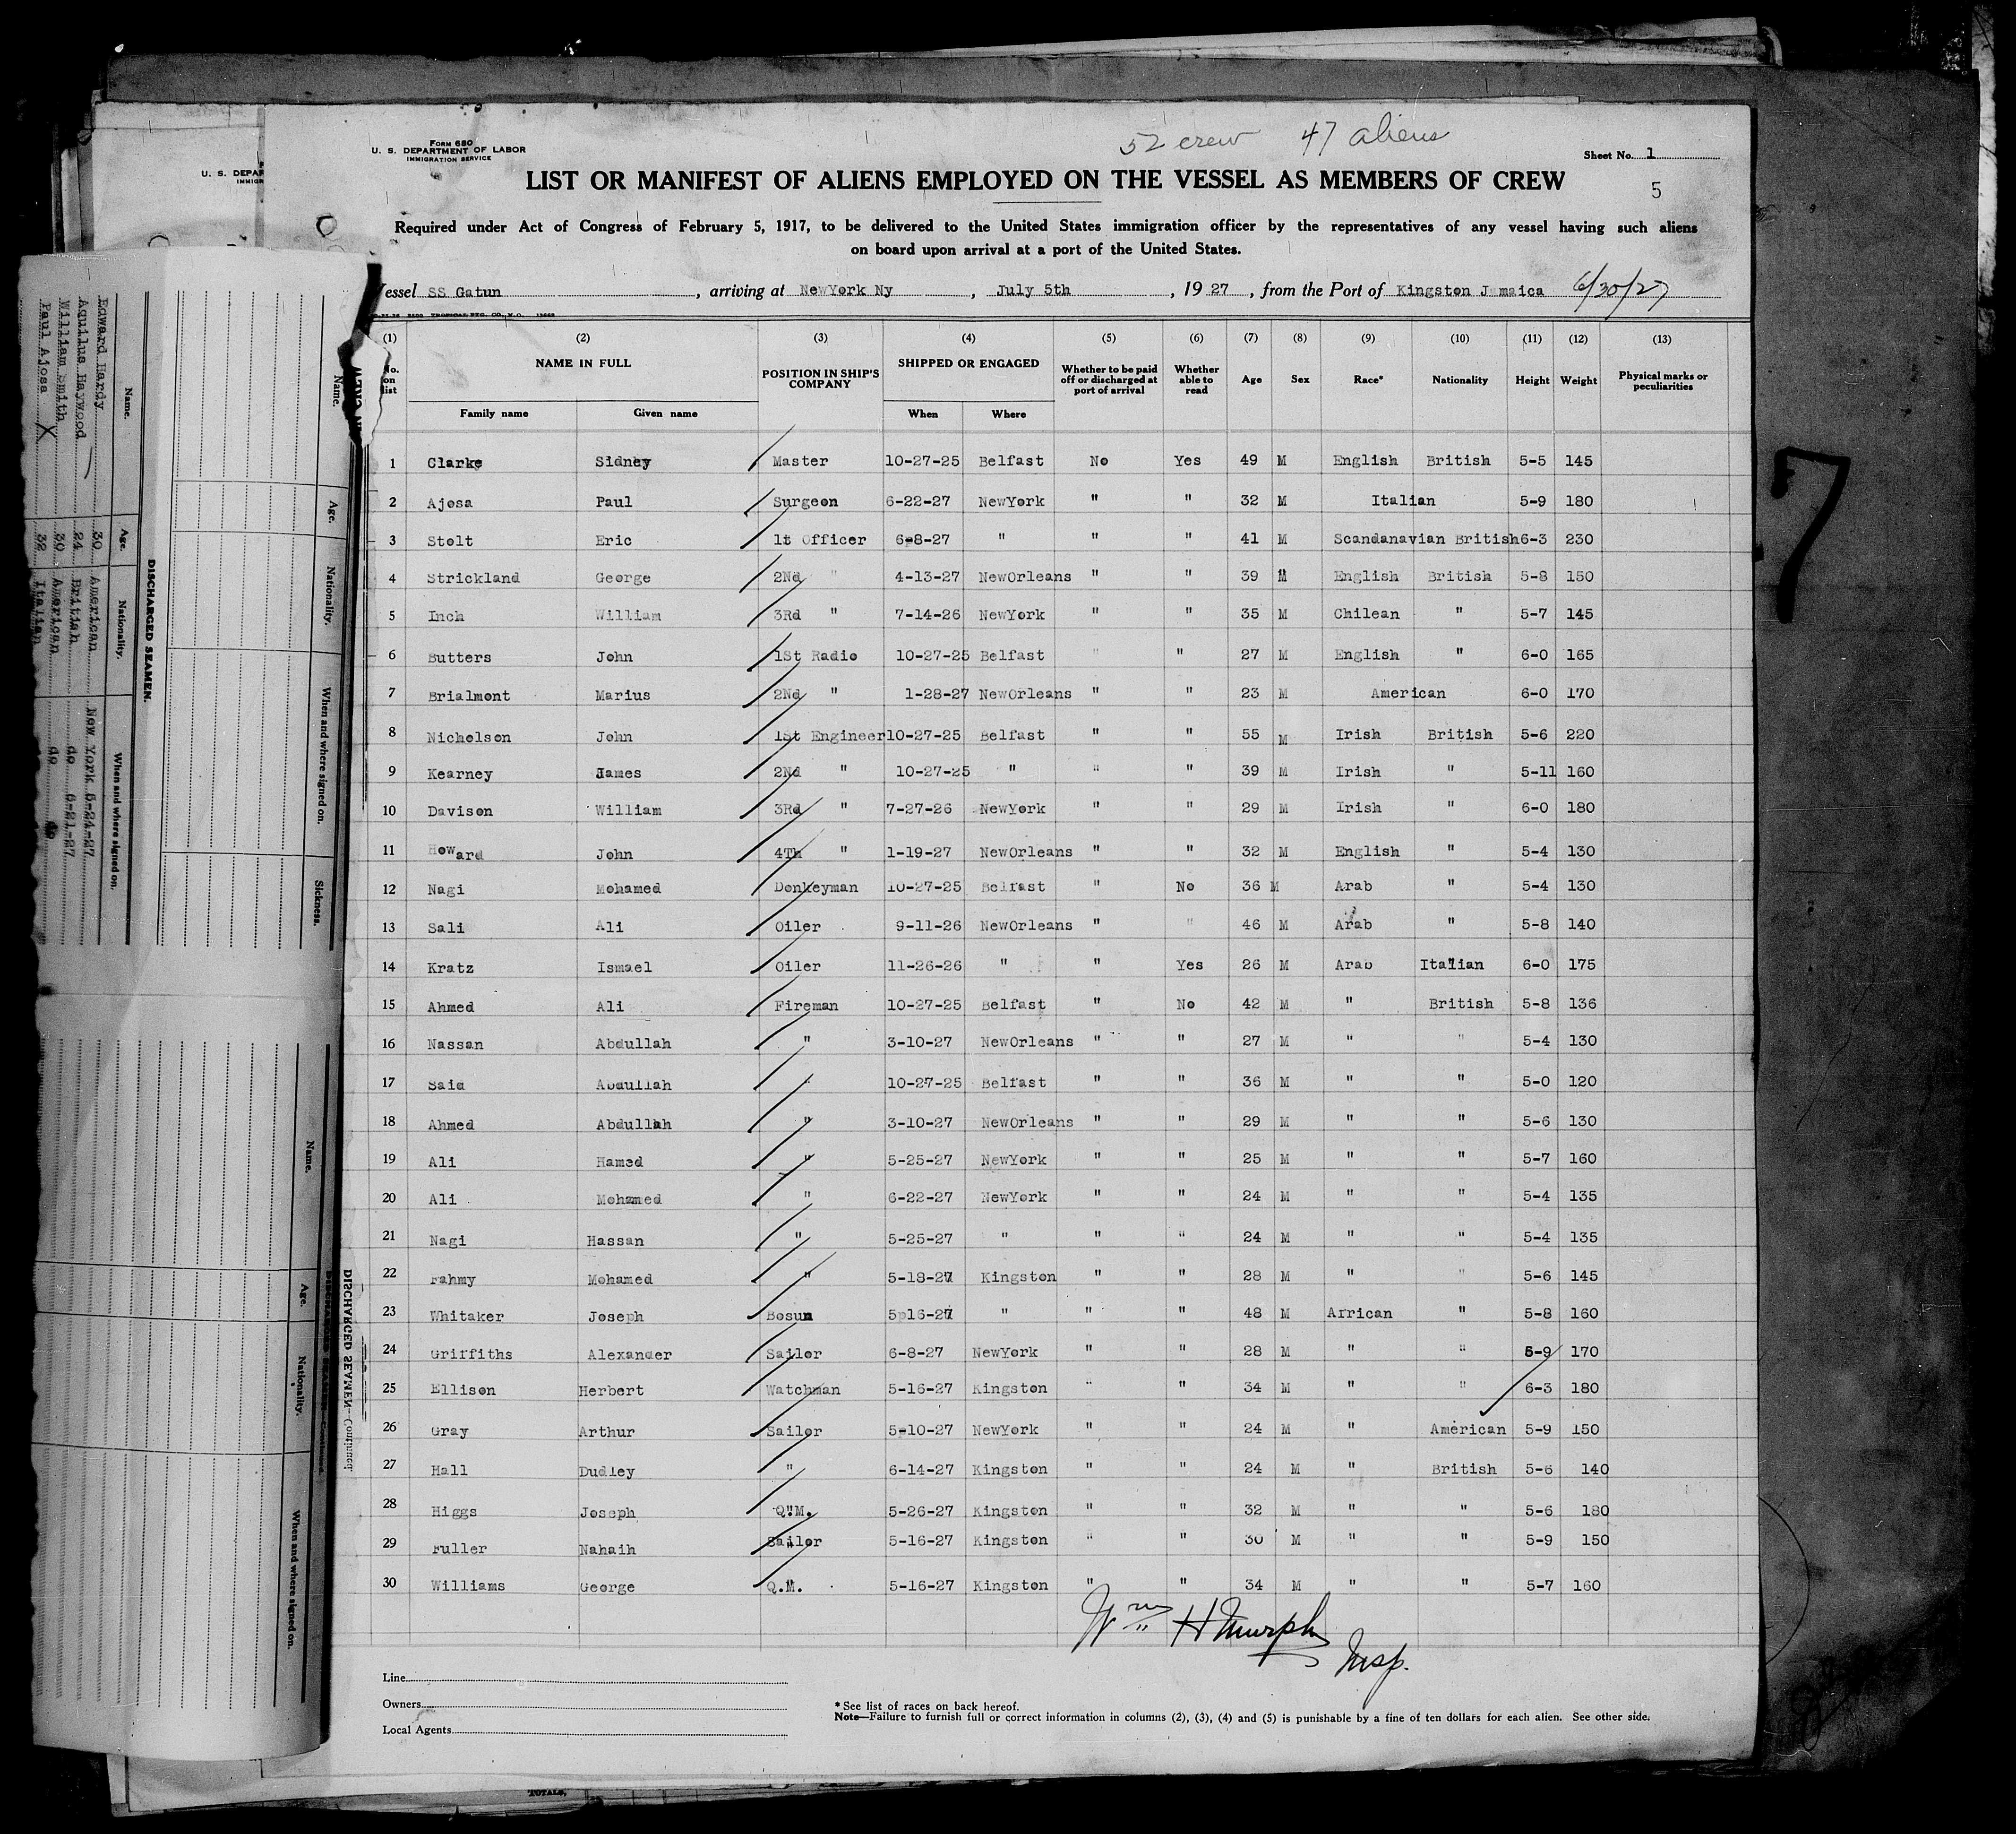 52 crew 47 aliens
Form 680
U. S. DEPARTMENT OF LABOR
IMMIGRATION SERVICE
Sheet No. 1
5
LIST OR MANIFEST OF ALIENS EMPLOYED ON THE VESSEL AS MEMBERS OF CREW
Required under Act of Congress of February 5, 1917, to be delivered to the United States immigration officer by the representatives of any vessel having such aliens
on board upon arrival at a port of the United States.
Vessel SS Gatun, arriving at NewYork Ny, July 5th, 1927, from the Port of Kingston Jamaica 6/30/27
(1) (2) (3) (4) (5) (6) (7) (8) (9) (10) (11) (12) (13)
No. on list NAME IN FULL Family name Given name POSITION IN SHIP'S COMPANY SHIPPED OR ENGAGED When Where Whether to be paid off or discharged at port of arrival Whether able to read Age Sex Race* Nationality Height Weight Physical marks or peculiarities
1 Clarke Sidney Master 10-27-25 Belfast No Yes 49 M English British 5-5 145
2 Ajosa Paul Surgeon 6-22-27 NewYork " " 32 M Italian 5-9 180
3 Stolt Eric 1t Officer 6-8-27 " " " 41 M Scandanavian British 6-3 230
4 Strickland George 2Nd " 4-13-27 NewOrleans " " 39 M English British 5-8 150
5 Inch William 3Rd " 7-14-26 NewYork " " 35 M Chilean " 5-7 145
6 Butters John 1St Radio 10-27-25 Belfast " " 27 M English " 6-0 165
7 Brialmont Marius 2Nd " 1-28-27 NewOrleans " " 23 M American 6-0 170
8 Nicholson John 1St Engineer 10-27-25 Belfast " " 55 M Irish British 5-6 220
9 Kearney James 2Nd " 10-27-25 " " " 39 M Irish " 5-11 160
10 Davison William 3Rd " 7-27-26 NewYork " " 29 M Irish " 6-0 180
11 Howard John 4Th " 1-19-27 NewOrleans " " 32 M English " 5-4 130
12 Nagi Mohamed Donkeyman 10-27-25 Belfast " No 36 M Arab " 5-4 130
13 Sali Ali Oiler 9-11-26 NewOrleans " " 46 M Arab " 5-8 140
14 Kratz Ismael Oiler 11-26-26 " " Yes 26 M Arab Italian 6-0 175
15 Ahmed Ali Fireman 10-27-25 Belfast " No 42 M " British 5-8 136
16 Nassan Abdullah " 3-10-27 NewOrleans " " 27 M " " 5-4 130
17 Said Abdullah " 10-27-25 Belfast " " 36 M " " 5-0 120
18 Ahmed Abdullah " 3-10-27 NewOrleans " " 29 M " " 5-6 130
19 Ali Hamed " 5-25-27 NewYork " " 25 M " " 5-7 160
20 Ali Mohamed " 6-22-27 NewYork " " 24 M " " 5-4 135
21 Nagi Hassan " 5-25-27 " " " 24 M " " 5-4 135
22 Fahmy Mohamed " 5-18-27 Kingston " " 28 M " " 5-6 145
23 Whitaker Joseph Bosun 5p16-27 " " " 48 M African " 5-8 160
24 Griffiths Alexander Sailor 6-8-27 NewYork " " 28 M " " 5-9 170
25 Ellison Herbert Watchman 5-16-27 Kingston " " 34 M " " 6-3 180
26 Gray Arthur Sailor 5-10-27 NewYork " " 24 M " American 5-9 150
27 Hall Dudley " 6-14-27 Kingston " " 24 M " British 5-6 140
28 Higgs Joseph Q.M. 5-26-27 Kingston " " 32 M " " 5-6 180
29 Fuller Nahaih Sailor 5-16-27 Kingston " " 30 M " " 5-9 150
30 Williams George Q.M. 5-16-27 Kingston " " 34 M " " 5-7 160
Wm H Murphy
Insp.
Line
Owners
Local Agents
* See list of races on back hereof.
Note—Failure to furnish full or correct information in columns (2), (3), (4) and (5) is punishable by a fine of ten dollars for each alien. See other side.
7
U. S. DEPAR
IMMIGR
DISCHARGED SEAMEN.
Name. Age. Nationality. When and where signed on.
Edward Hardy 30 American New York 5-24-27
Aquilus Haywood 24 British do 6-21-27
William Smith 30 American do
Paul Ajosa X 32 Italian do
Name. Age. Nationality. When and where signed on. Sickness.
DISCHARGED SEAMEN—Continued
Name. Age. Nationality. When and where signed on.
TOTALS,